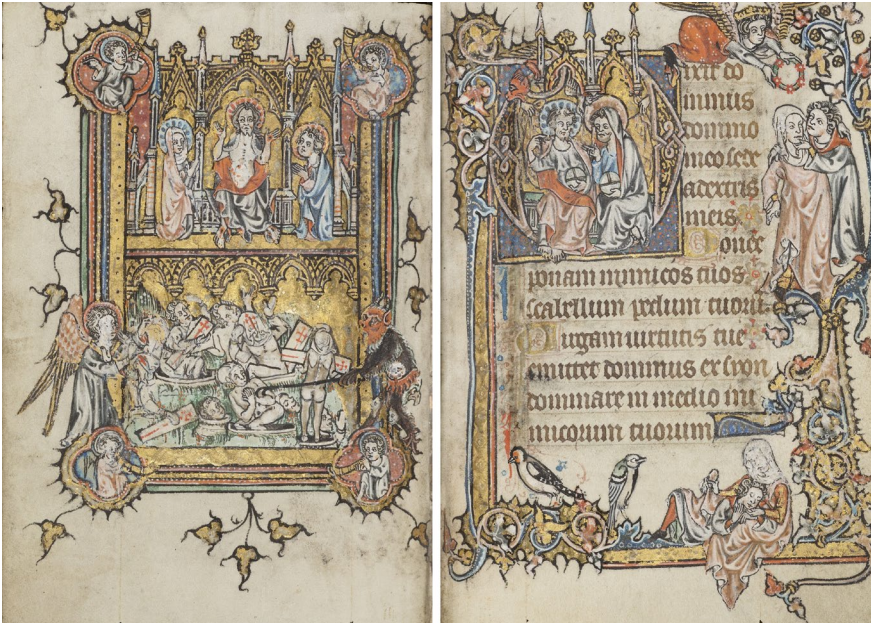 Dixit do
minus
domino
meo sede
a dextris
meis
Donec
ponam inimicos tuos
scabellum pedum tuorū
Uirgam uirtutis tue
emittet dominus ex syon
dominare in medio ini
micorum tuorum